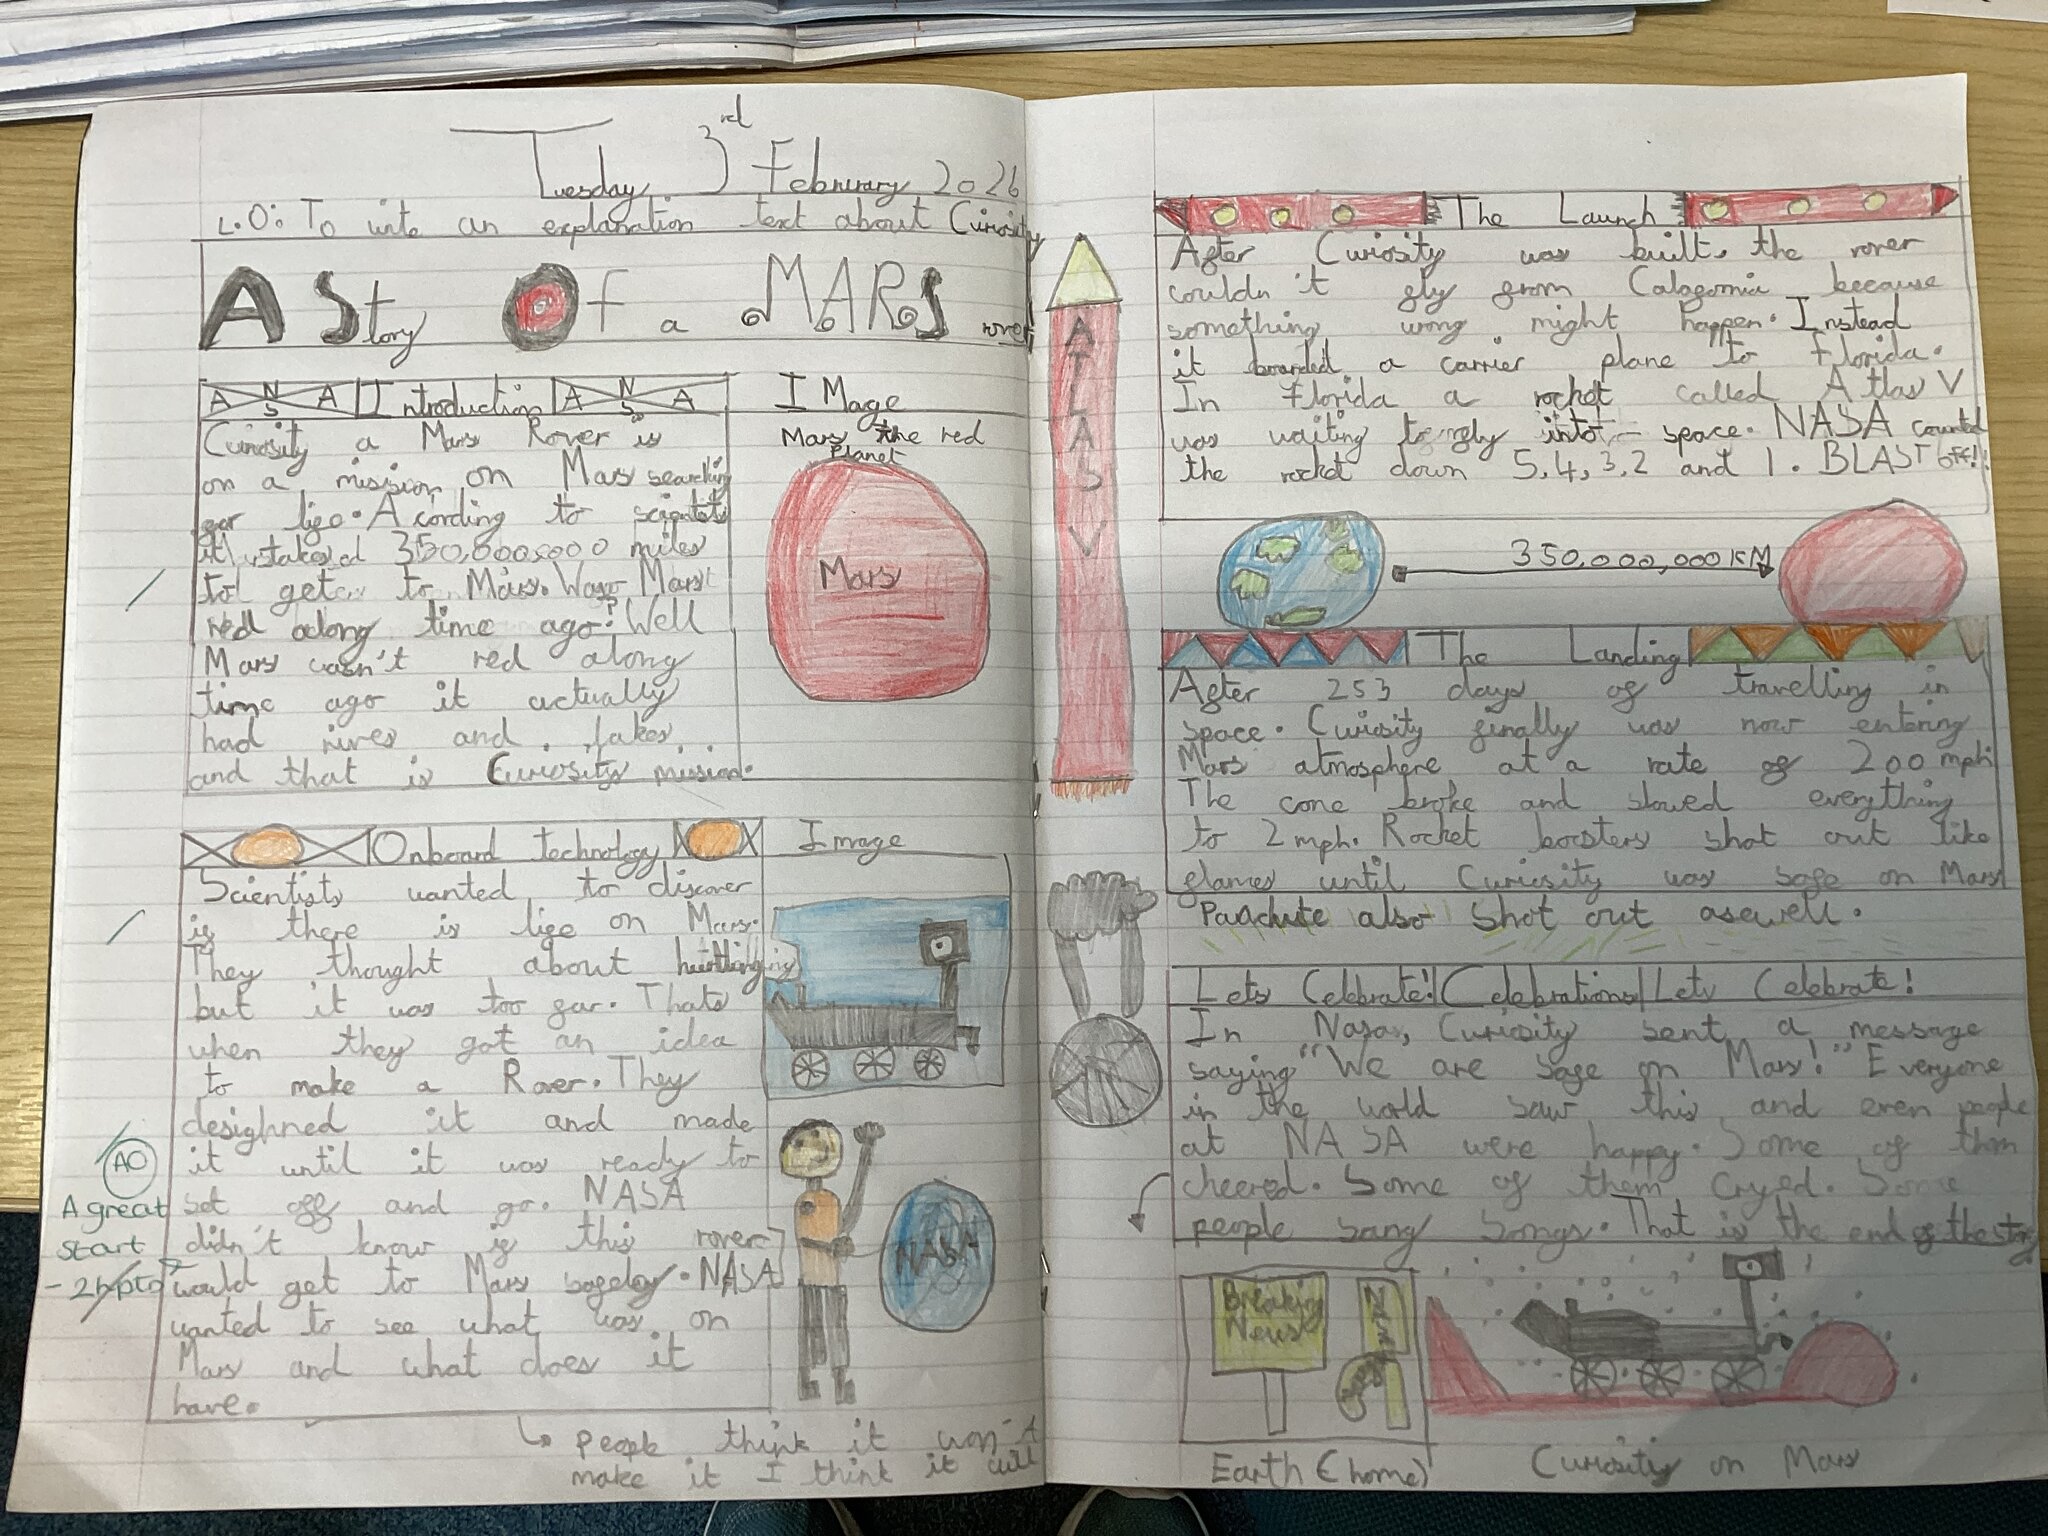 Tuesday 3rd February 2026
L.O: To write an explanation text about Curiosity
A Story Of a MARS rover
NASA Introduction NASA
Curiosity a Mars Rover is
on a misision on Mars searching
for life. Acording to scientists
it takes 350,000,000 miles
to get to Mars. Was Mars
red along time ago? Well
Mars wasn't red along
time ago it actually
had rives and lakes
and that is Curiositys mission.
IMage
Mars the red
Planet
Mars
Onboard technology
Scientists wanted to discover
if there is life on Mars.
They thought about
but it was too far. Thats
when they got an idea
to make a Rover. They
desighned it and made
it until it was ready to
set off and go. NASA
didn't know if this rover
would get to Mars safeley. NASA
wanted to see what was on
Mars and what does it
have.
Image
NASA
AO
A great
start
- 2hpts
people think it won't
make it I think it will
ATLAS V
The Launch
After Curiosity was built, the rover
couldn't fly from Califomia because
something wrong might happen. Instead
it boarded a carrier plane to Florida.
In Florida a rocket called Atlas V
was waiting to fly into space. NASA counted
the rocket down 5,4,3,2 and 1. BLAST off!!
350,000,000KM
The Landing
After 253 days of travelling in
space. Curiosity finally was now entering
Mars atmosphere at a rate of 200mph.
The cone broke and slowed everything
to 2mph. Rocket boosters shot out like
flames until Curiosity was safe on Mars
Parachute also shot out aswell.
Lets Celebrate! Celebrations Lets Celebrate!
In Nasa, Curiosity sent a message
saying "We are safe on Mars!" Everyone
in the world saw this and even people
at NASA were happy. Some of them
cheered. Some of them cryed. Some
people sang songs. That is the end of the story
Breaking
News
Earth (home)
Curiosity on Mars